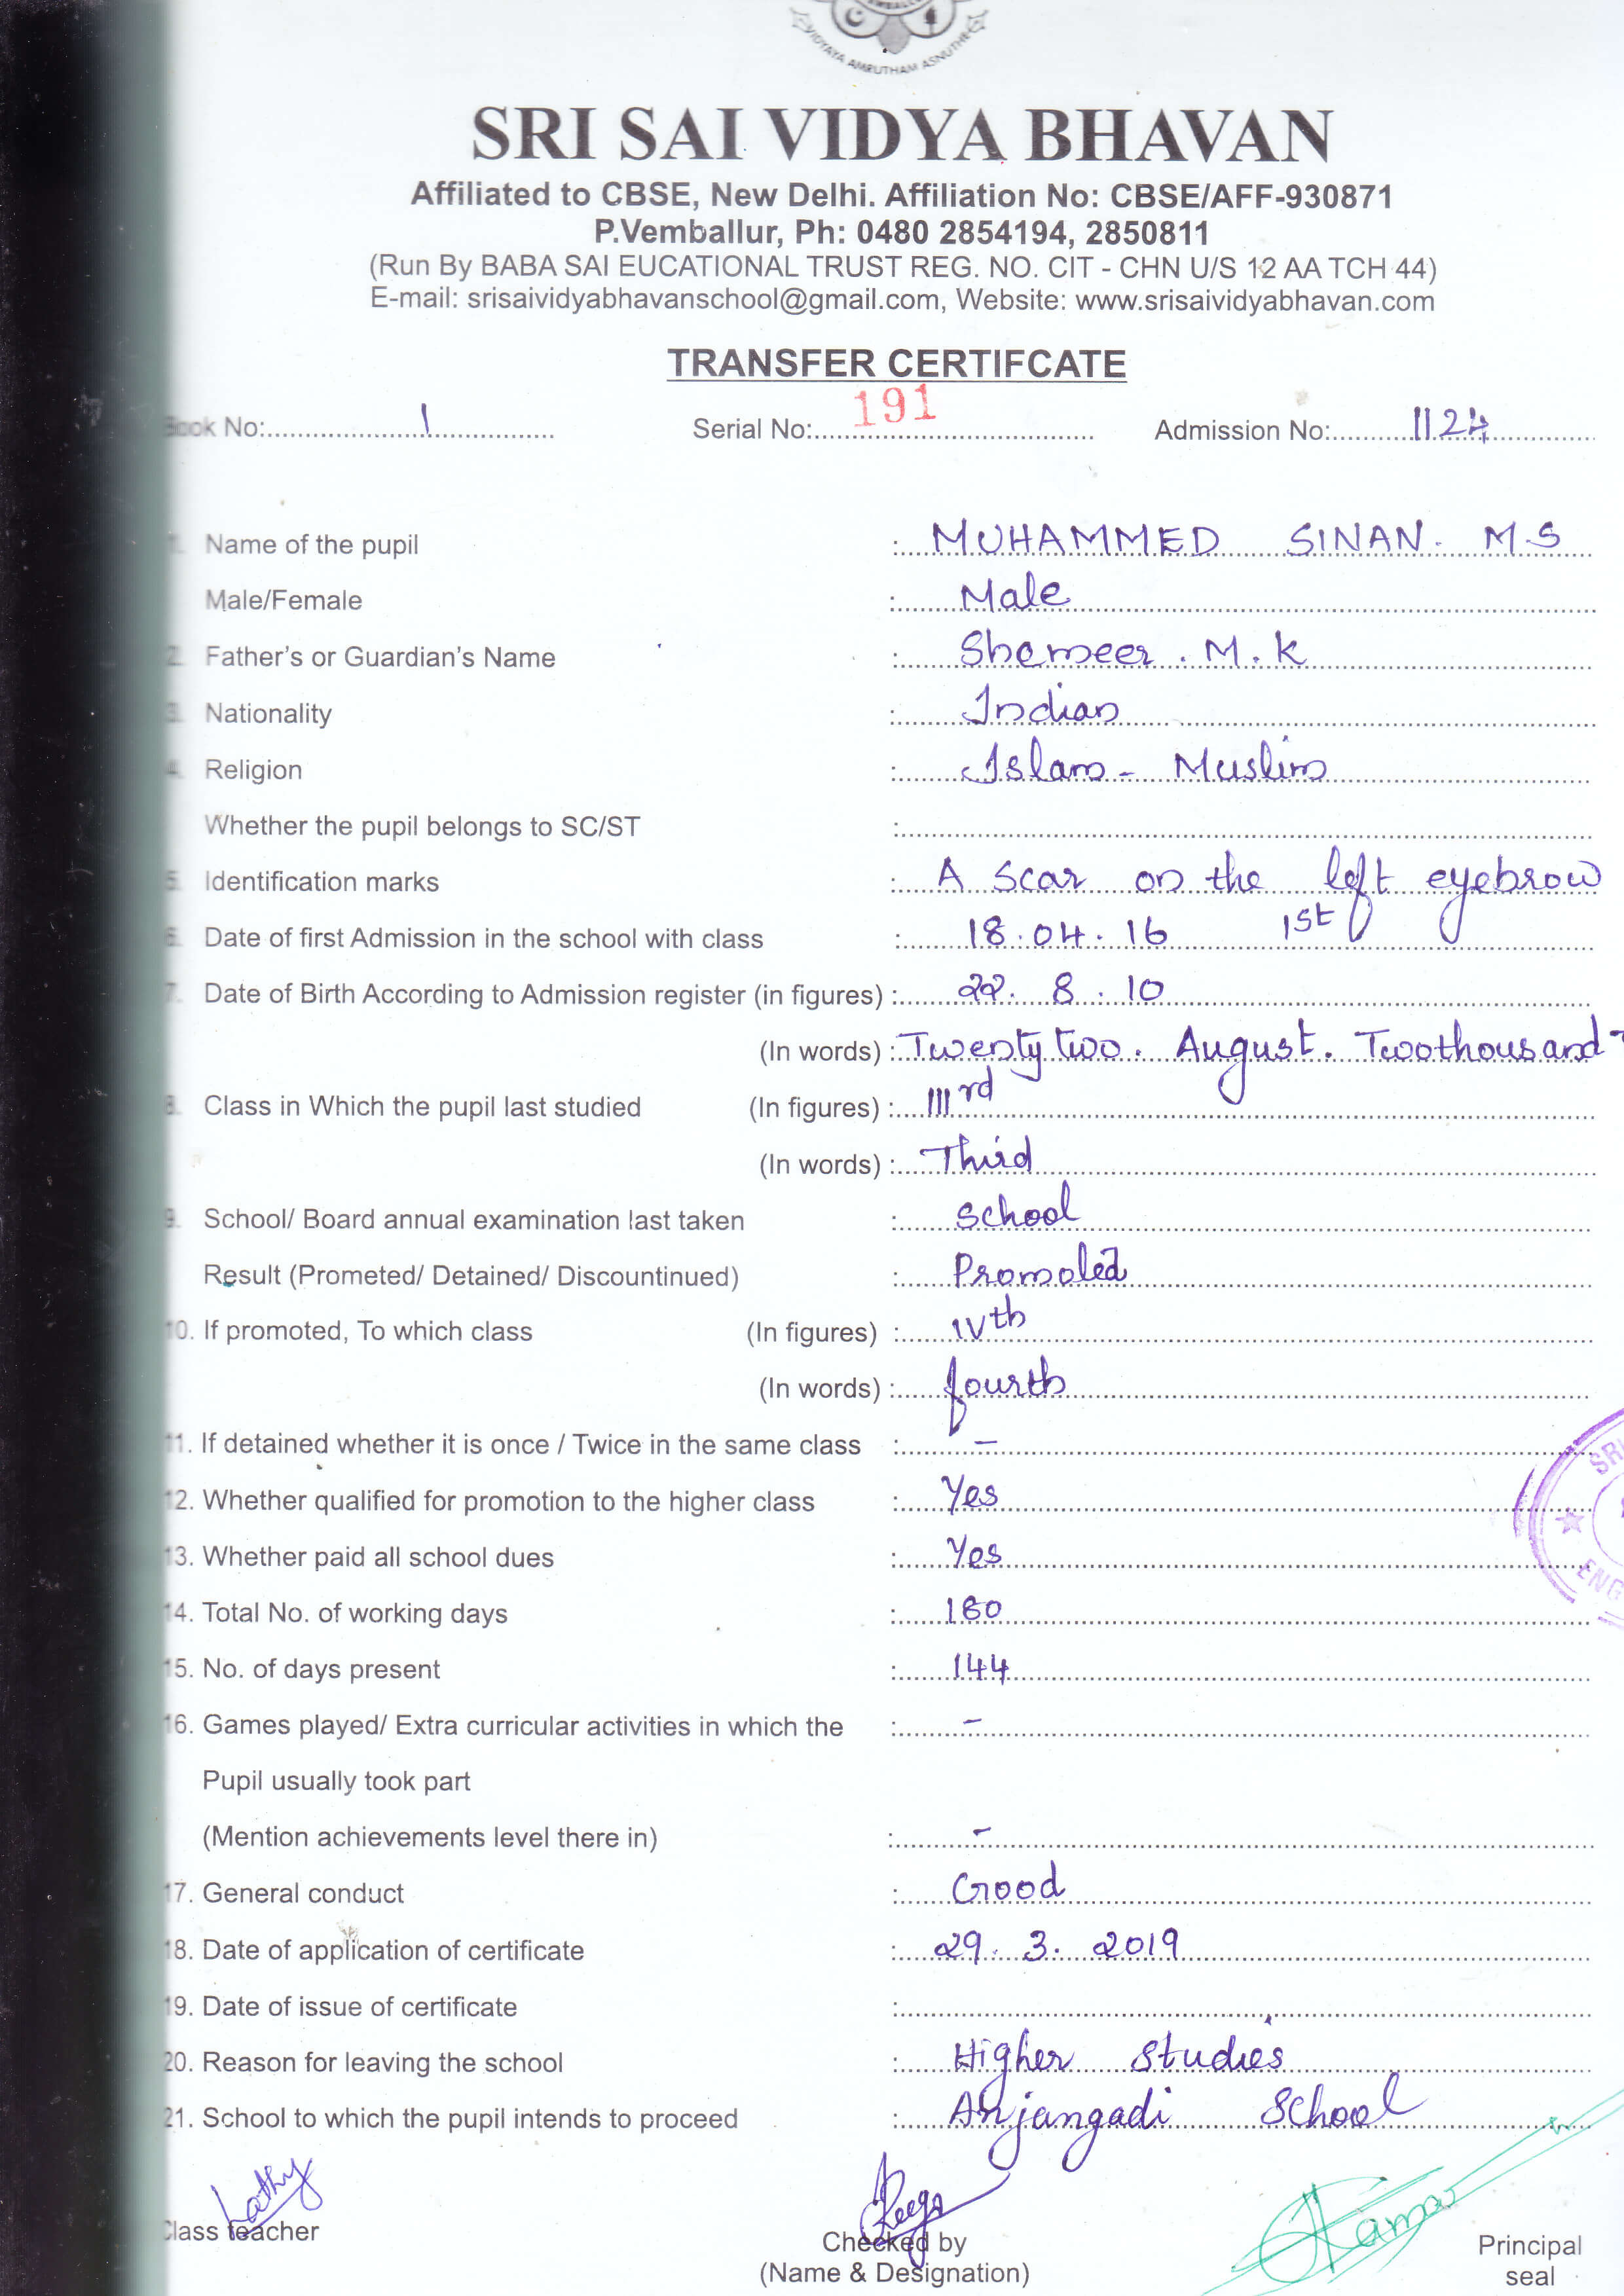 EMBALLU
VIDYAYA AMRUTHAM ASNUTHE
SRI SAI VIDYA BHAVAN
Affiliated to CBSE, New Delhi. Affiliation No: CBSE/AFF-930871
P.Vemballur, Ph: 0480 2854194, 2850811
(Run By BABA SAI EUCATIONAL TRUST REG. NO. CIT - CHN U/S 12 AA TCH 44)
E-mail: srisaividyabhavanschool@gmail.com, Website: www.srisaividyabhavan.com
TRANSFER CERTIFCATE
Book No: 1 Serial No: 191 Admission No: 1124
1. Name of the pupil : MUHAMMED SINAN. M.S
Male/Female : Male
2. Father's or Guardian's Name : Shameer . M. K
3. Nationality : Indian
4. Religion : Islam - Muslim
Whether the pupil belongs to SC/ST :
5. Identification marks : A scar on the left eyebrow
6. Date of first Admission in the school with class : 18.04.16 1st
7. Date of Birth According to Admission register (in figures) : 22. 8. 10
(In words) : Twenty two. August. Twothousand T
8. Class in Which the pupil last studied (In figures) : IIIrd
(In words) : Third
9. School/ Board annual examination last taken : School
Result (Prometed/ Detained/ Discountinued) : Promoted
10. If promoted, To which class (In figures) : IVth
(In words) : fourth
11. If detained whether it is once / Twice in the same class : -
12. Whether qualified for promotion to the higher class : Yes
13. Whether paid all school dues : Yes
14. Total No. of working days : 180
15. No. of days present : 144
16. Games played/ Extra curricular activities in which the : -
Pupil usually took part
(Mention achievements level there in) : -
17. General conduct : Good
18. Date of application of certificate : 29. 3. 2019
19. Date of issue of certificate :
20. Reason for leaving the school : Higher Studies
21. School to which the pupil intends to proceed : Anjangadi School
SRI
ENG
Lathy
Class teacher
Checked by
(Name & Designation)
Principal
seal